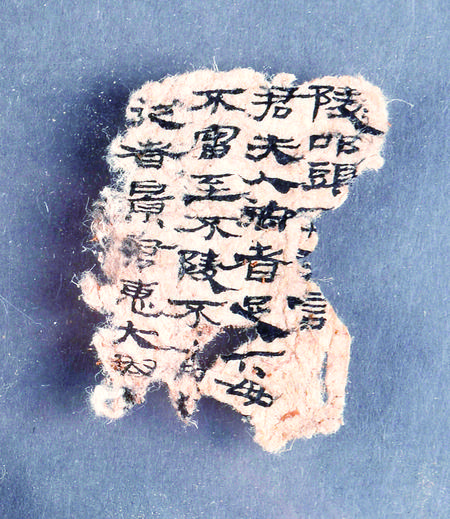 陵叩頭言
君夫人御者足下毋
不甯至不陵不
記者君惠大